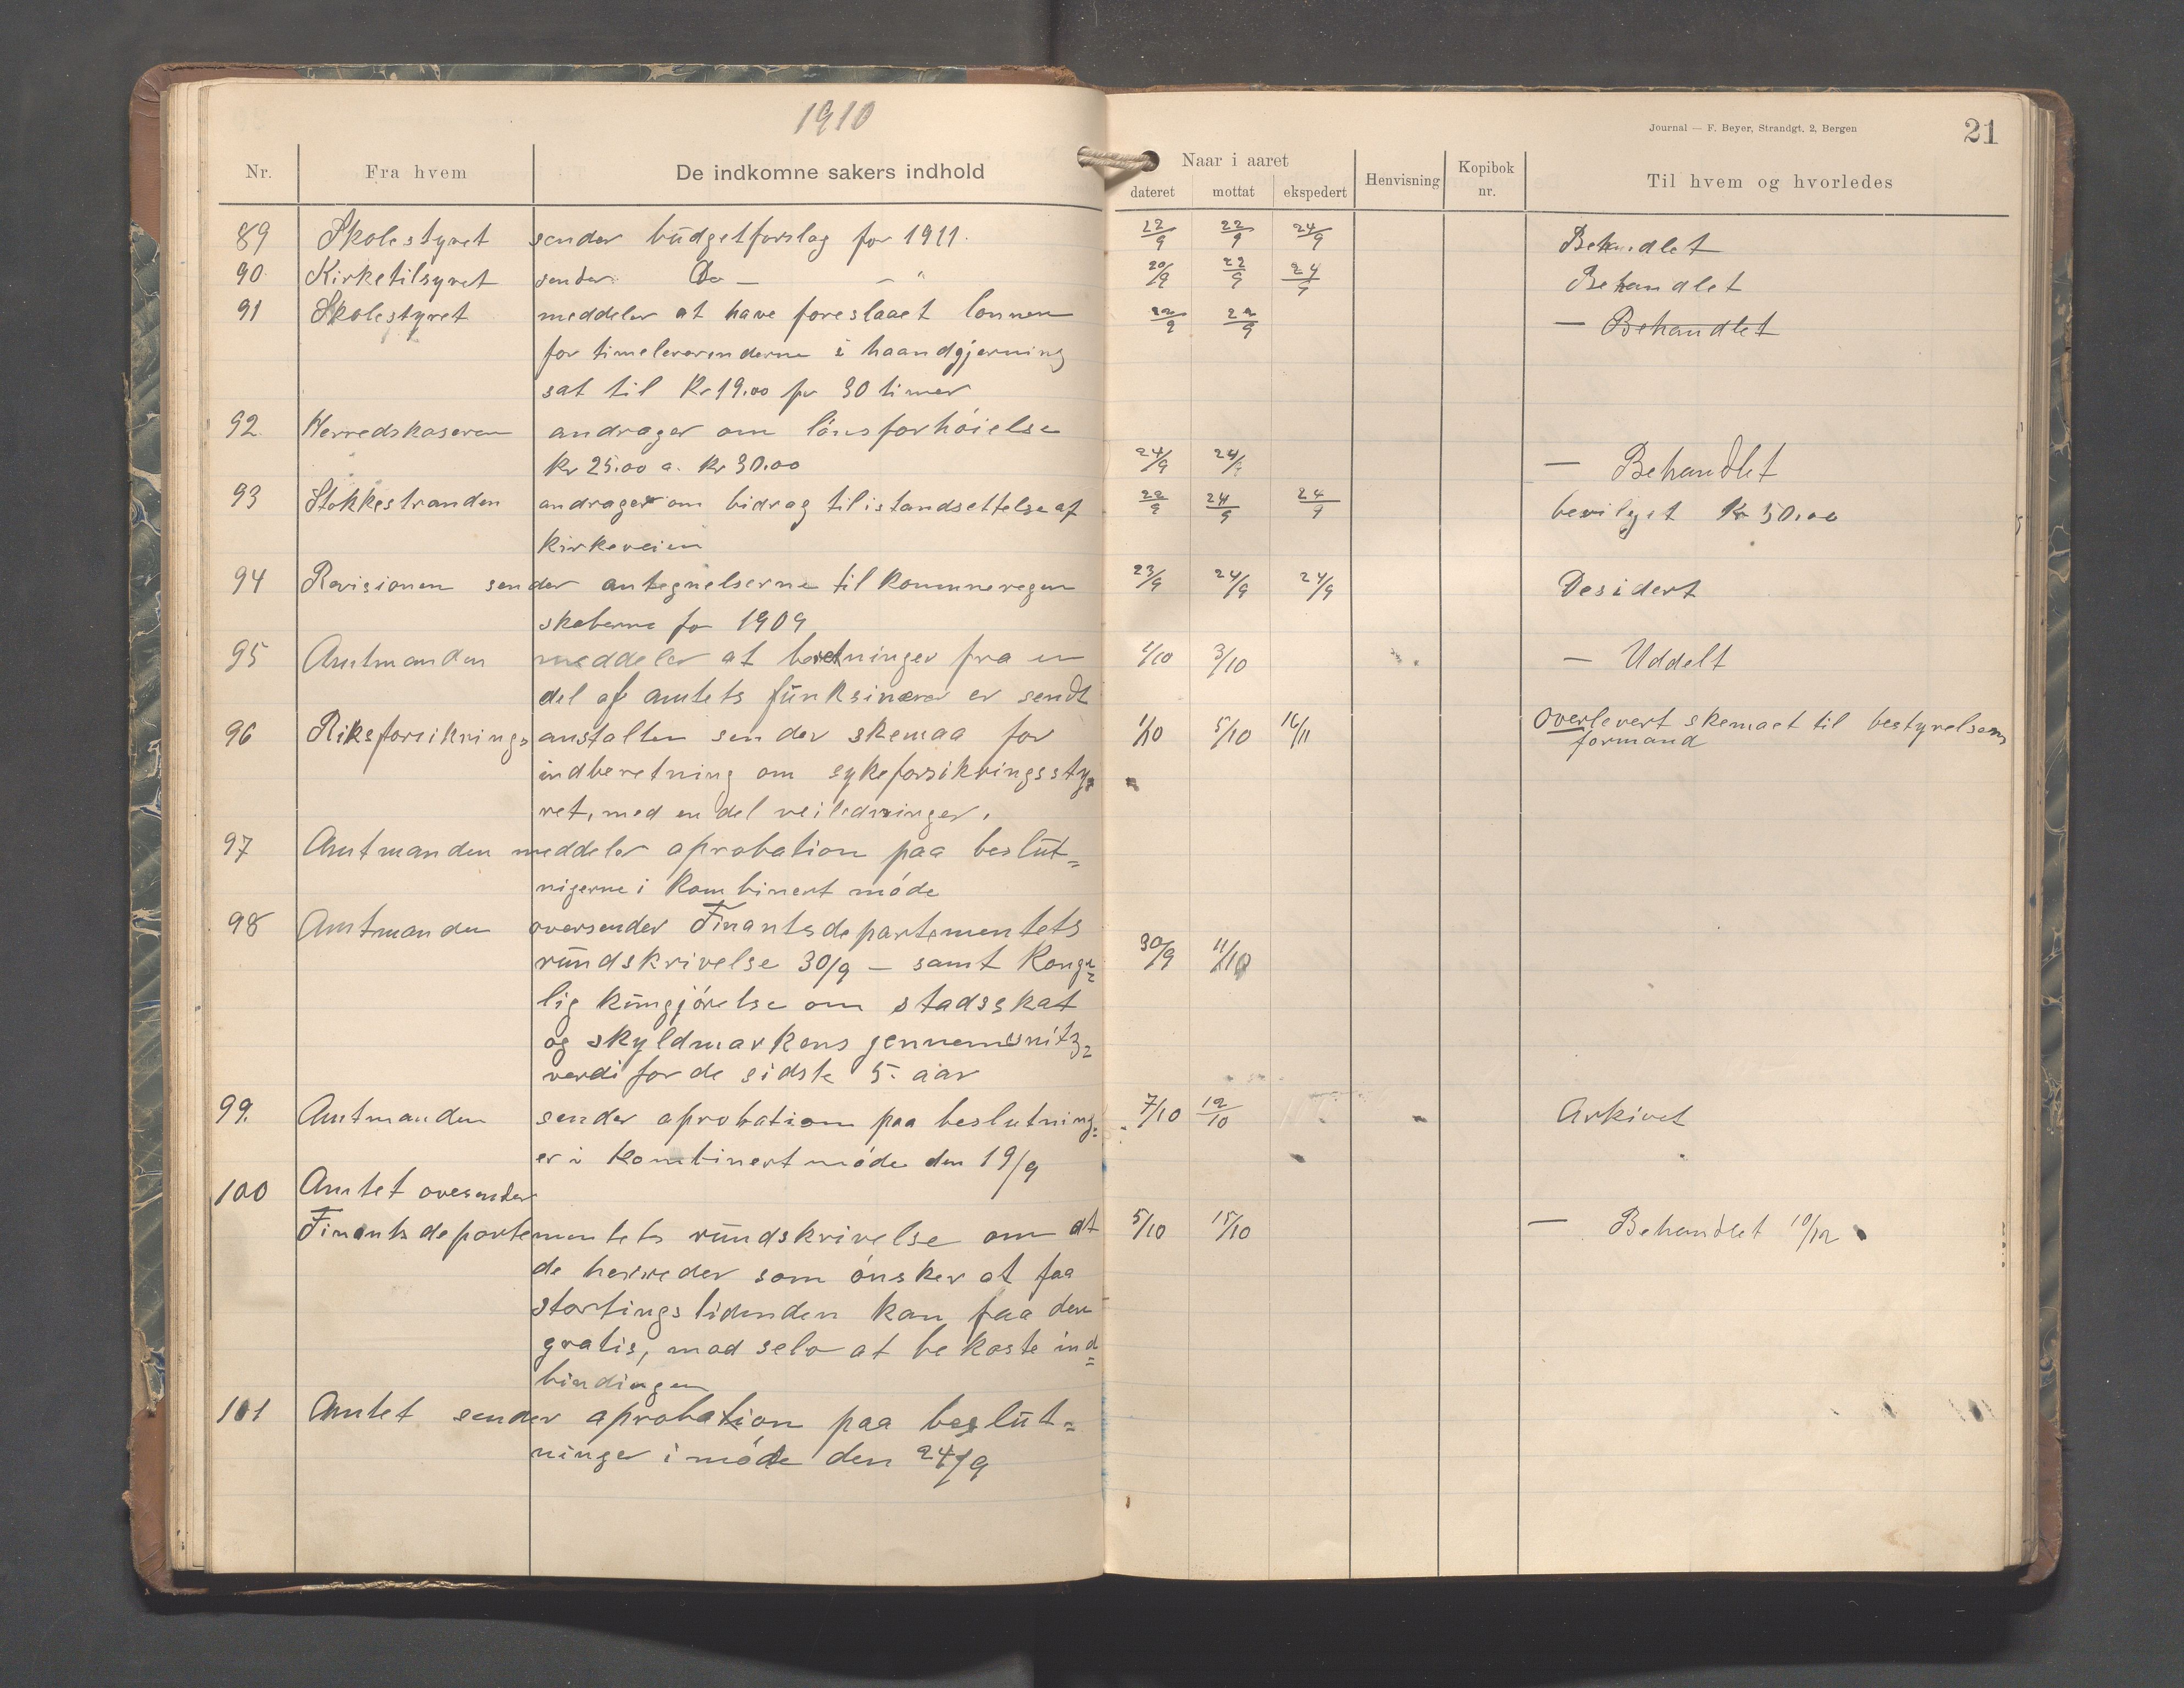 1910
Journal — F. Beyer, Strandgt. 2, Bergen
21
Nr. Fra hvem De indkomne sakers indhold Naar i aaret dateret mottat ekspedert Henvisning Kopibok nr. Til hvem og hvorledes
89 Skolestyret sender budgetforslag for 1911. 22/9 22/9 24/9 Behandlet
90 Kirketilsynet sender Do — — " 20/9 22/9 24/9 Behandlet
91 Skolestyret meddeler at have foreslaaet lonnen 22/9 22/9 — Behandlet
for timelærerinderne i haandgjerning
sat til Kr 19.00 pr 30 timer
92. Herredskaseren andrager om lónsforhóielse
Kr 25.00 a. Kr 30.00 24/9 24/9 — Behandlet
93 Stokkestranden andrager om bidrag til istandsettelse af 22/9 24/9 24/9 bevilget Kr 50.00
kirkeveien
94 Revisionen sender antegnelserne til kommuneregen 23/9 24/9 24/9 Desidert
skaberne for 1909
95 Amtmanden meddeler at beretninger fra en 1/10 3/10 — Uddelt
del af amtets funksinærer er sendt
96 Riksforsikringsanstalten sender skemaa for 1/10 5/10 16/11 Overlevert skemaet til bestyrelsens
formand
indberetning om sykeforsikringssty=
ret, med en del veiledninger.
97 Amtmanden meddeler aprobation paa beslut=
nigerne i kombinert móde
98 Amtmanden oversender Finantsdepartementets
rundskrivelse 30/9 — samt Konge= 30/9 11/10
lig kungjórelse om stadsskat
og skyldmarkens jennemsnits=
verdi for de sidste 5. aar
99. Amtmanden sender aprobation paa beslutning= 7/10 12/10 Arkivet
er i kombinert móde den 19/9
100 Amtet ovesender
Finantsdepartementets rundskrivelse om at 5/10 15/10 — Behandlet 10/12
de herreder som ónsker at faa
stortingstidenden kan faa den
gratis, mod selv at bekoste ind=
bindingen
101 Amtet sender aprobation paa beslut=
ninger i móde den 24/9